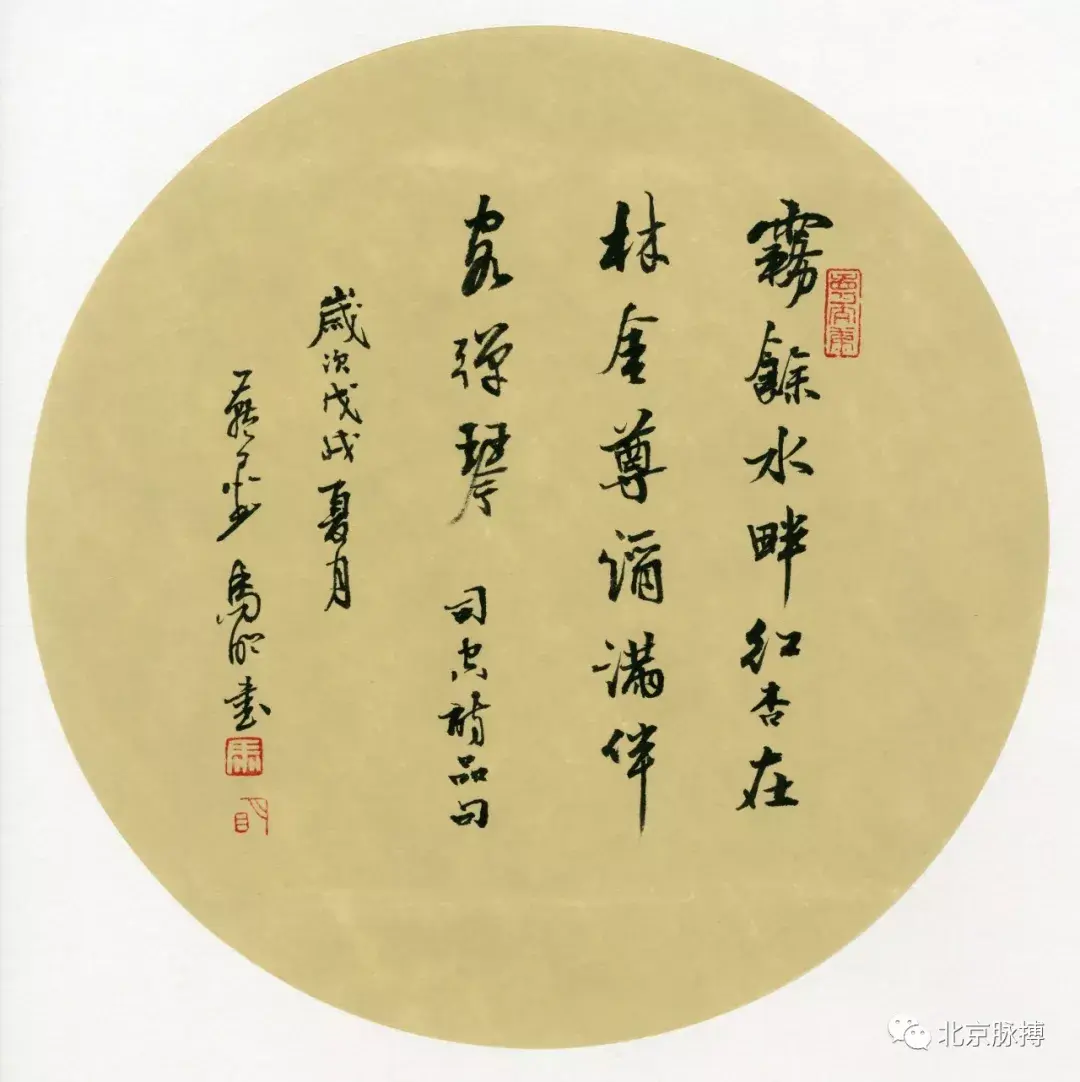 霧餘水畔紅杏在
林金尊酒滿伴
客彈琴 司空詩品句
歲次戊戌夏月
燕 馬明書
北京脉搏